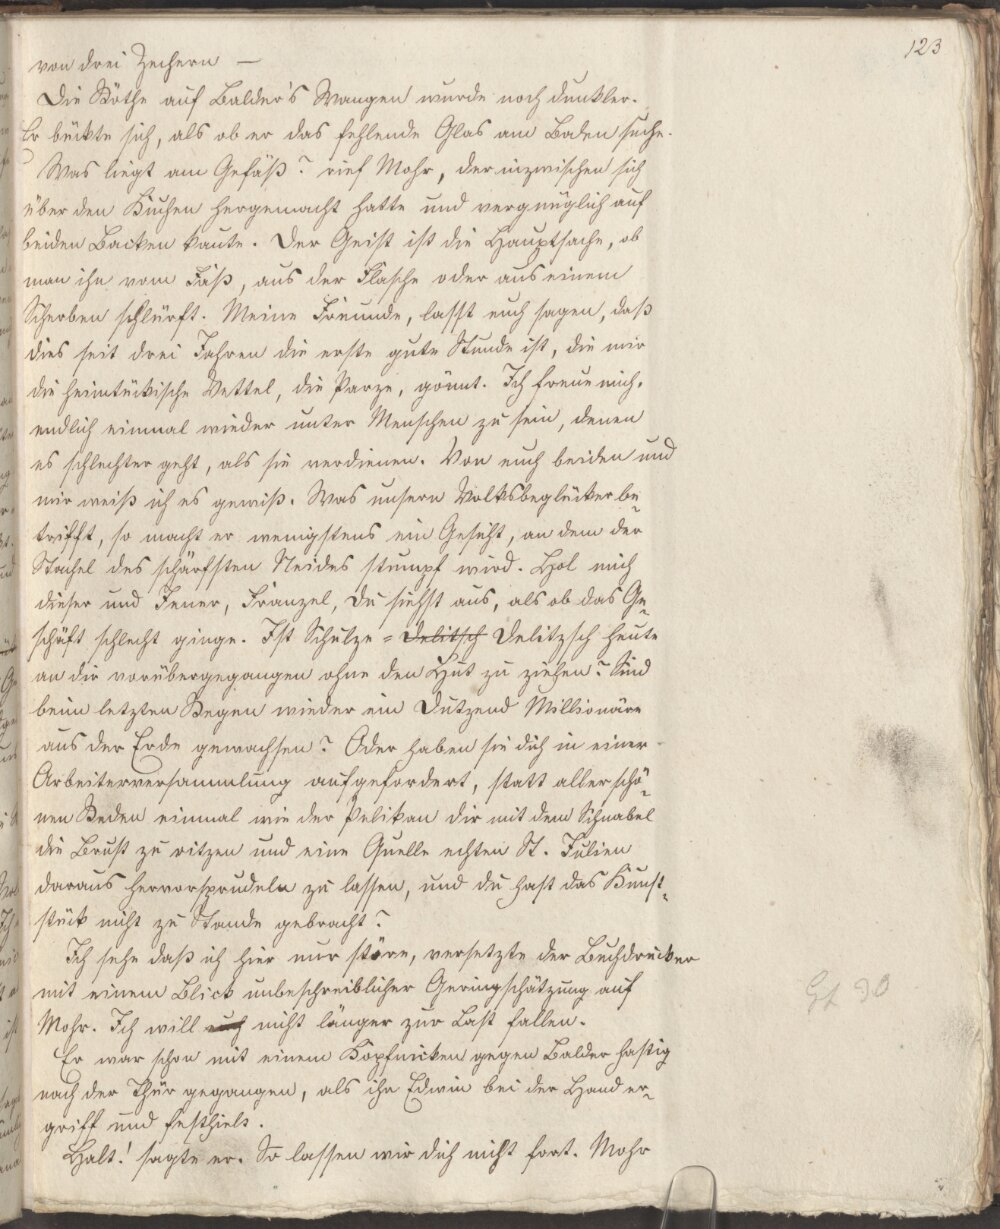 123
von drei Zechern —
Die Röthe auf Balder's Wangen wurde noch dunkler.
Er bückte sich, als ob er das fehlende Glas am Boden suche.
Was liegt am Gefäß? rief Mohr, der inzwischen sich
über den Kuchen hergemacht hatte und vergnüglich auf
beiden Backen kaute. Der Geist ist die Hauptsache, ob
man ihn vom Faß, aus der Flasche oder aus einem
Scherben schlürft. Meine Freunde, lasst euch sagen, daß
dies seit drei Jahren die erste gute Stunde ist, die mir
die heimtückische Vettel, die Parze, gönnt. Ich freue mich,
endlich einmal wieder unter Menschen zu sein, denen
es schlechter geht, als sie verdienen. Von euch beiden und
mir weiß ich es gewiß. Was unsern Volksbeglücker be
trifft, so macht er wenigstens ein Gesicht, an dem der
Stachel des schärfsten Neides stumpf wird. Hol mich
dieser und Jener, Franzel, du siehst aus, als ob das Ge
schäft schlecht ginge. Ist Schulze = Delitsch Delitzsch heute
an dir vorübergegangen ohne den Hut zu ziehen? Sind
beim letzten Regen wieder ein Dutzend Millionäre
aus der Erde gewachsen? Oder haben sie dich in einer
Arbeiterversammlung aufgefordert, statt aller schö-
nen Reden einmal wie der Pelikan dir mit dem Schnabel
die Brust zu ritzen und eine Quelle echten St. Julien
daraus hervorsprudeln zu lassen, und du hast das Kunst-
stück nicht zu Stande gebracht?
Ich sehe daß ich hier nur störe, versetzte der Buchdrucker
mit einem Blick unbeschreiblicher Geringschätzung auf
Mohr. Ich will euch nicht länger zur Last fallen.
Er war schon mit einem Kopfnicken gegen Balder hastig
nach der Thür gegangen, als ihn Edwin bei der Hand er-
griff und festhielt.
Halt! sagte er. So lassen wir dich nicht fort. Mohr